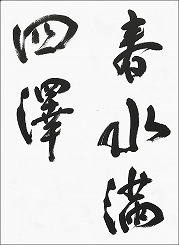 春水满
四澤